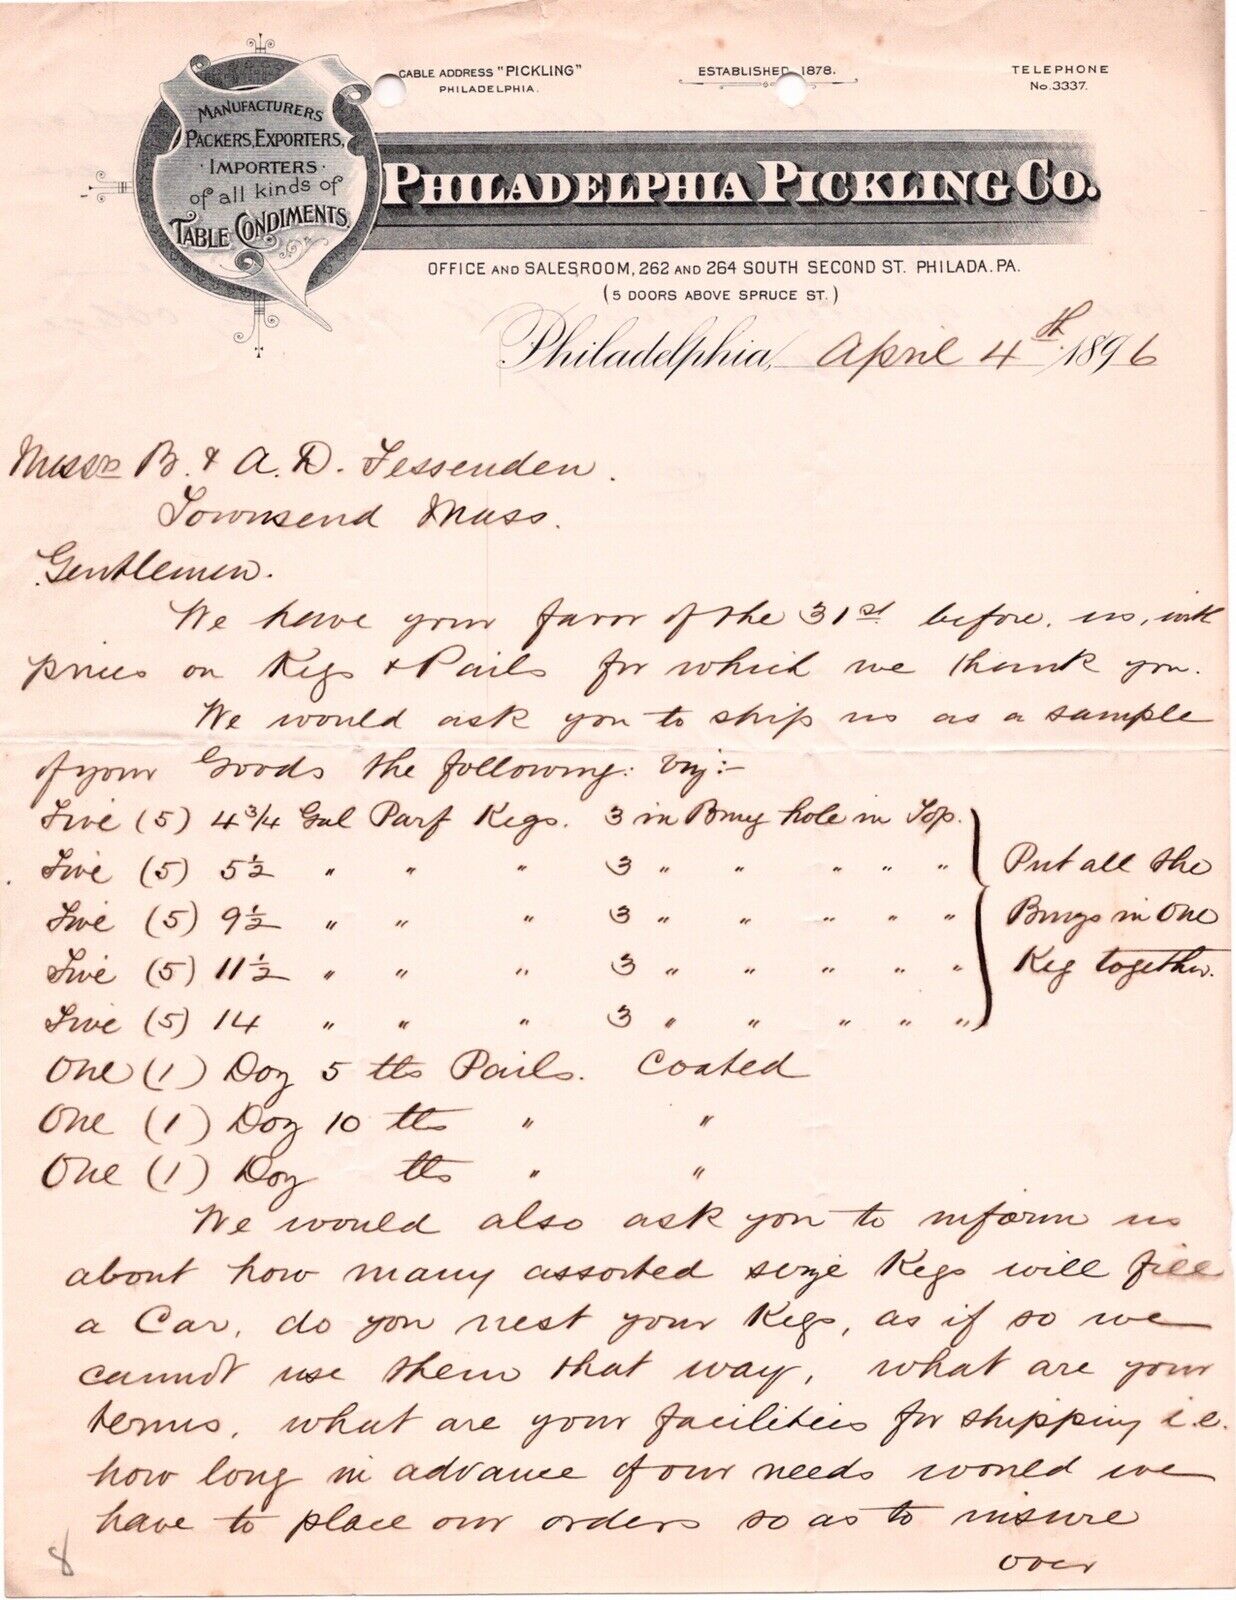 MANUFACTURERS
PACKERS, EXPORTERS,
· IMPORTERS ·
of all kinds of
TABLE CONDIMENTS.
CABLE ADDRESS "PICKLING"
PHILADELPHIA.
ESTABLISHED 1878.
TELEPHONE
No. 3337.
PHILADELPHIA PICKLING CO.
OFFICE AND SALESROOM, 262 AND 264 SOUTH SECOND ST. PHILADA. PA.
(5 DOORS ABOVE SPRUCE ST.)
Philadelphia, April 4th 1896
Messrs B. & A. D. Fessenden.
Townsend Mass.
Gentlemen.
We have your favor of the 31st before us, with
prices on Kegs & Pails for which we thank you.
We would ask you to ship us as a sample
of your Goods the following: viz:-
Five (5) 4 3/4 Gal Parf Kegs. 3 in Bung hole in Top.
Five (5) 5 1/2 " " " 3 " " " " "
Five (5) 9 1/2 " " " 3 " " " " "
Five (5) 11 1/2 " " " 3 " " " " "
Five (5) 14 " " " 3 " " " " "
Put all the
Bungs in One
Keg together.
One (1) Doz 5 lbs Pails. Coated
One (1) Doz 10 lbs " "
One (1) Doz lbs " "
We would also ask you to inform us
about how many assorted size Kegs will fill
a Car, do you nest your Kegs, as if so we
cannot use them that way, what are your
terms, what are your facilities for shipping i.e.
how long in advance of our needs would we
have to place our orders so as to insure
over
8